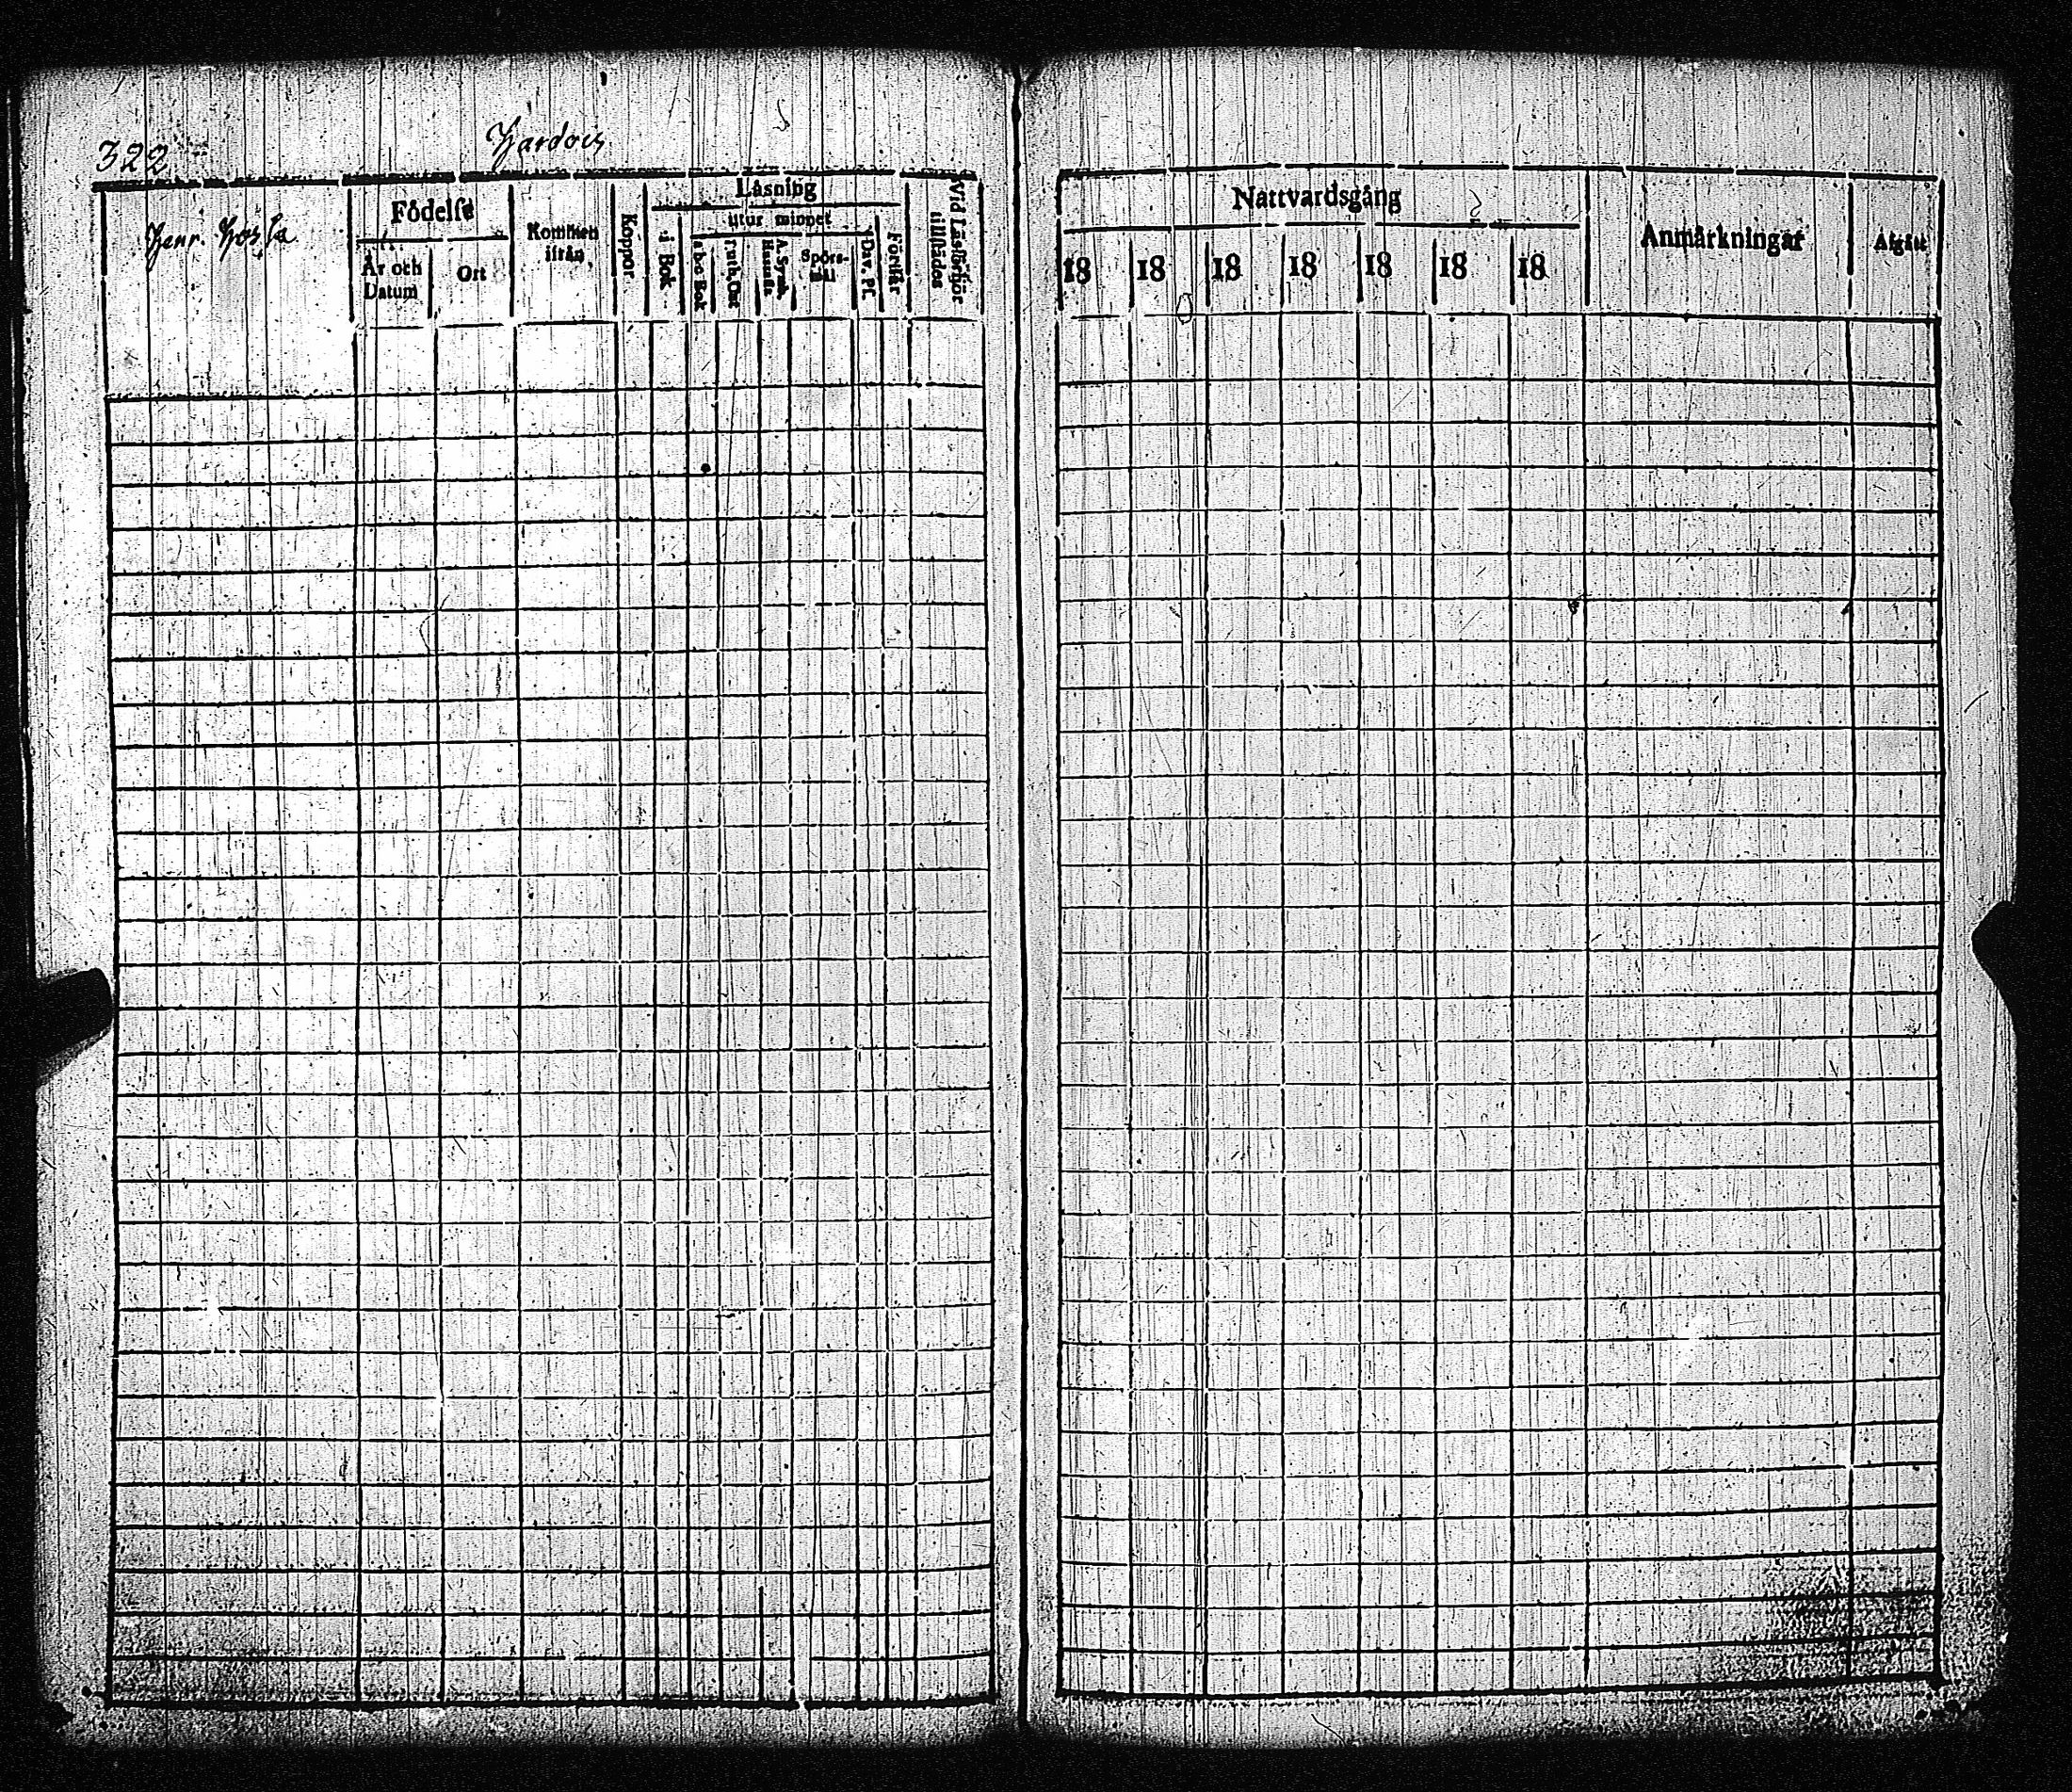 322
Läsning
Födelse
utur minnet
Kommen
ifrån
Koppor.
i Bok
Spörs-
mål
Dav. Ps.
Förstår
Vid Läsförhör
tillstädes
År och
Datum
Ort
a b c Bok
Luth. Cat
A. Symb.
Hustafla
Nattvardsgång
Anmärkningar
Afgått
18 18 18 18 18 18 18